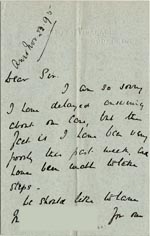 Ansd Nov. 23 95
Dear Sir.
I am so sorry
I have delayed answering
about our Cars, but the
fact is I have been very
poorly the past week, and
have been unable to take
steps.
We should like to have
for our